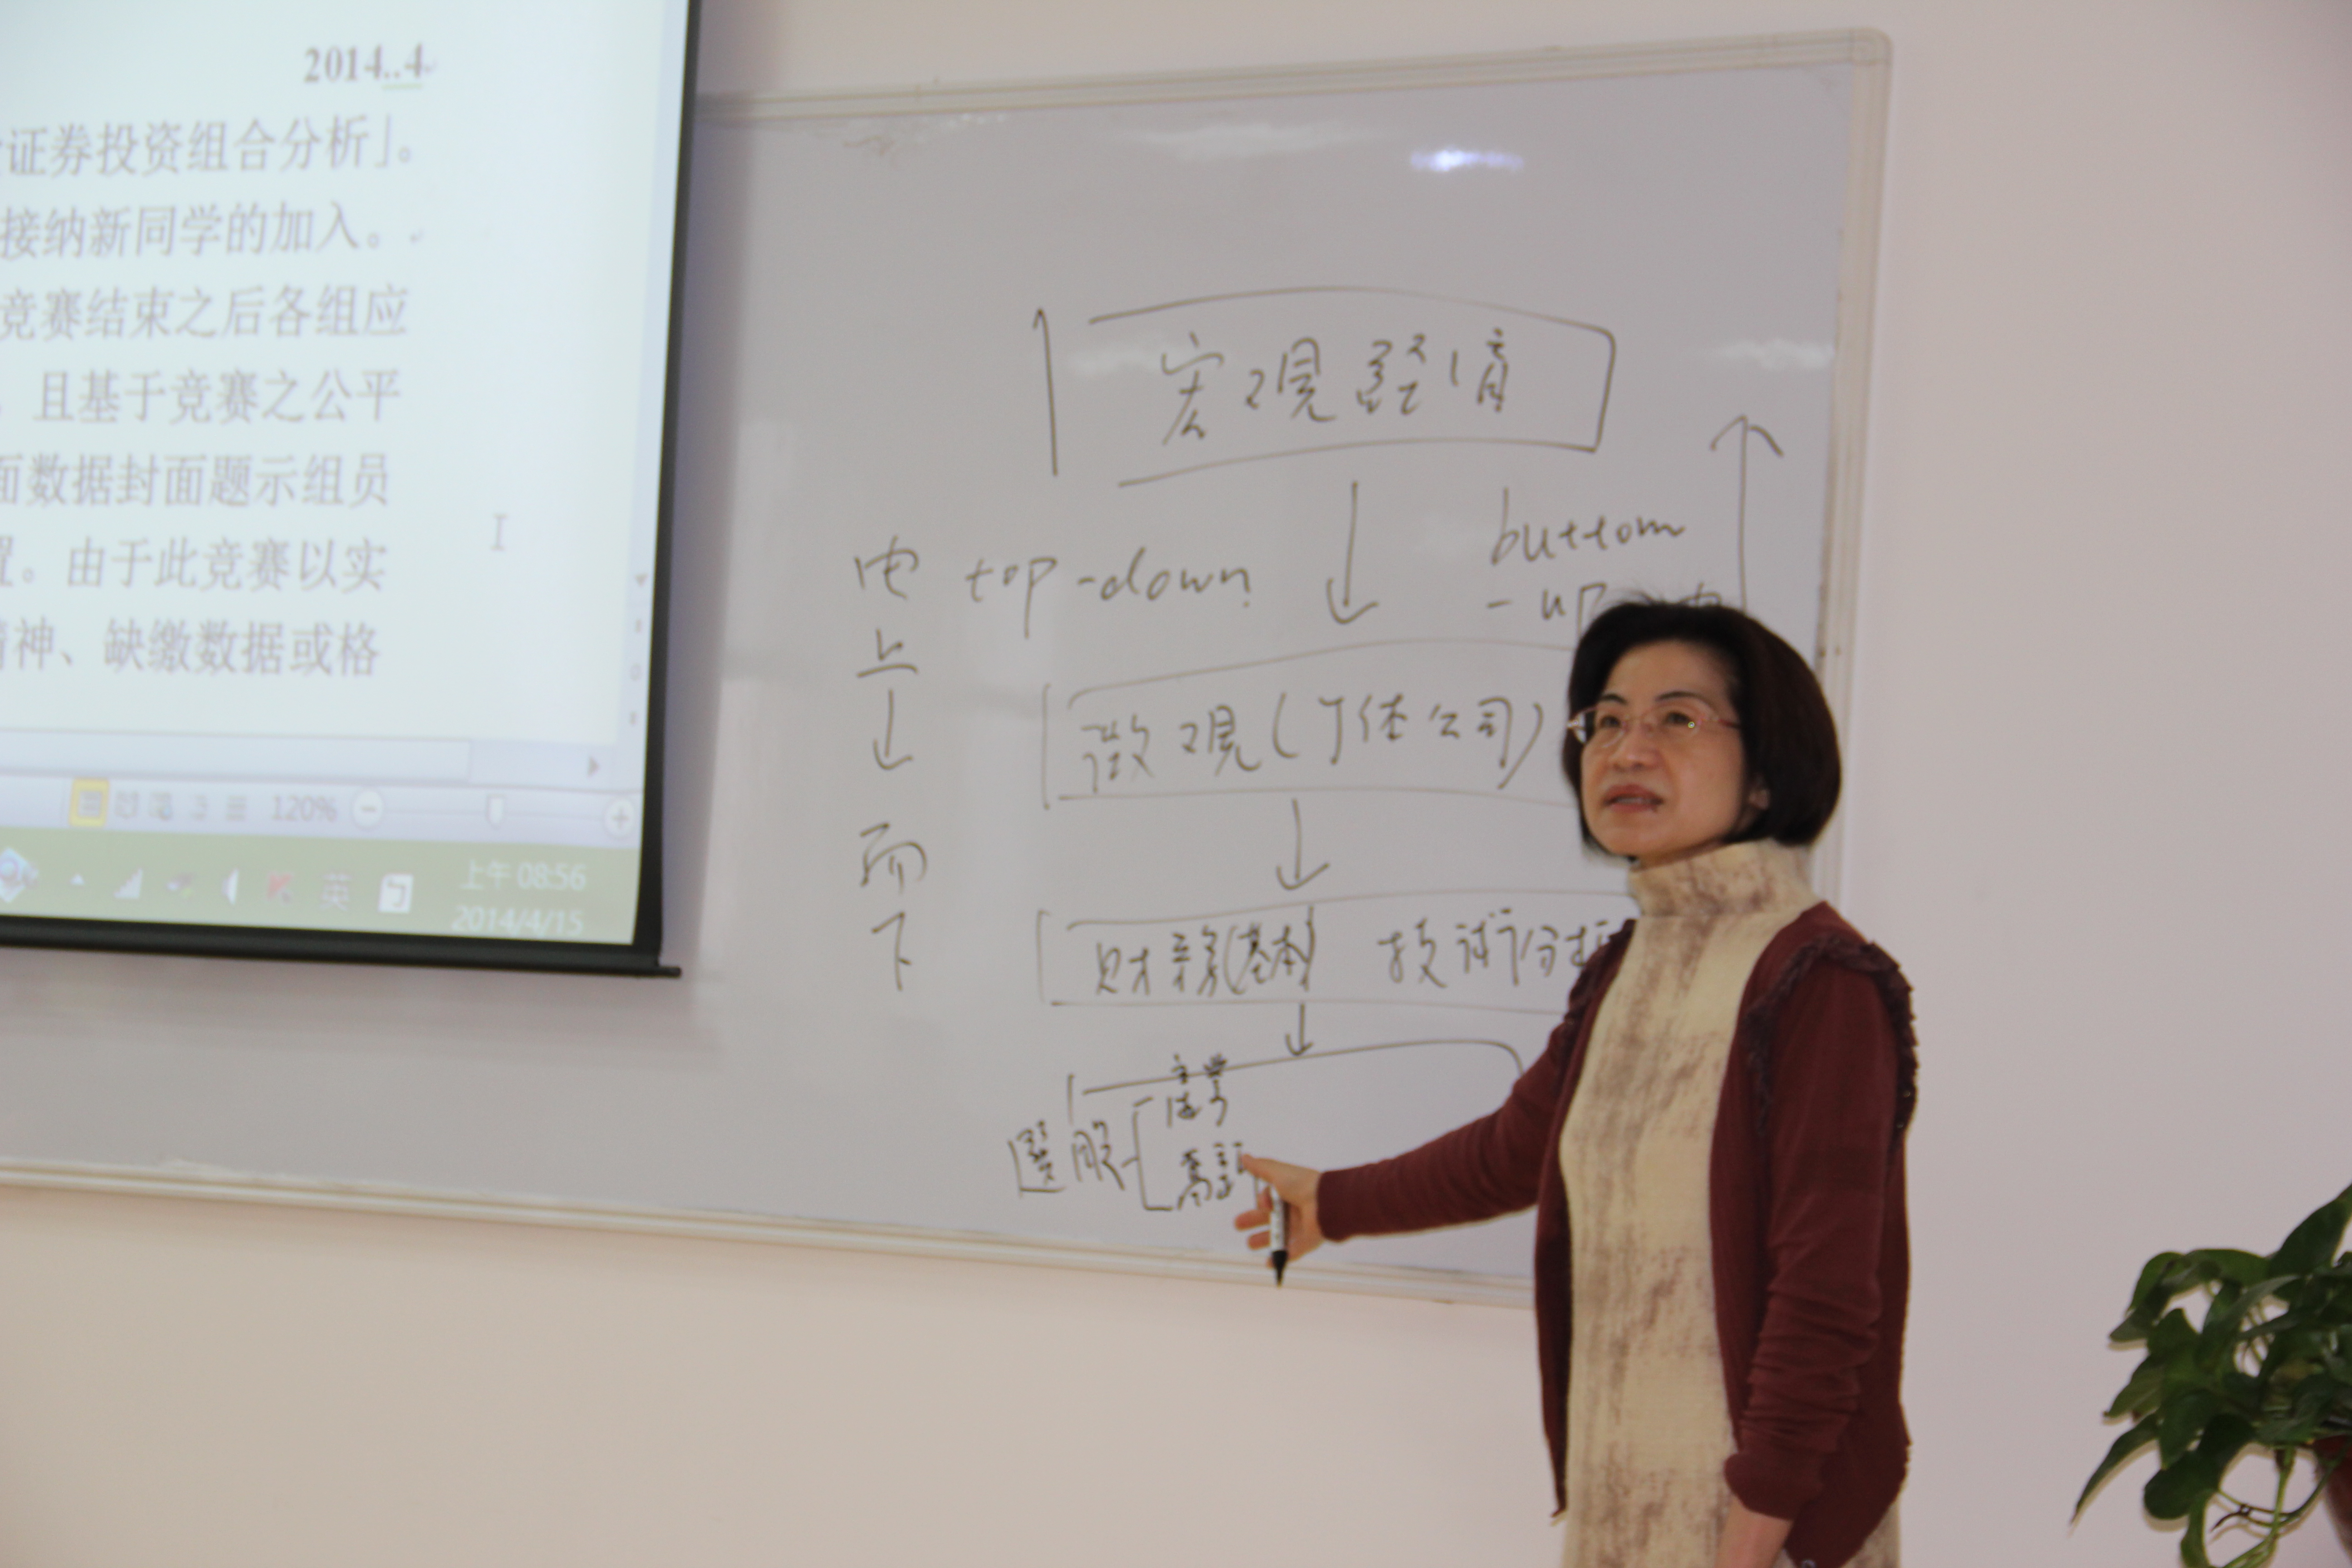 2014..4
证券投资组合分析」。
接纳新同学的加入。
竞赛结束之后各组应
且基于竞赛之公平
面数据封面题示组员
置。由于此竞赛以实
精神、缺缴数据或格
120%
英
上午 08:56
2014/4/15
宏觀經濟
由上而下
top-down
buttom
-up
微觀(个体公司)
財務(基本)
技術分析
選股